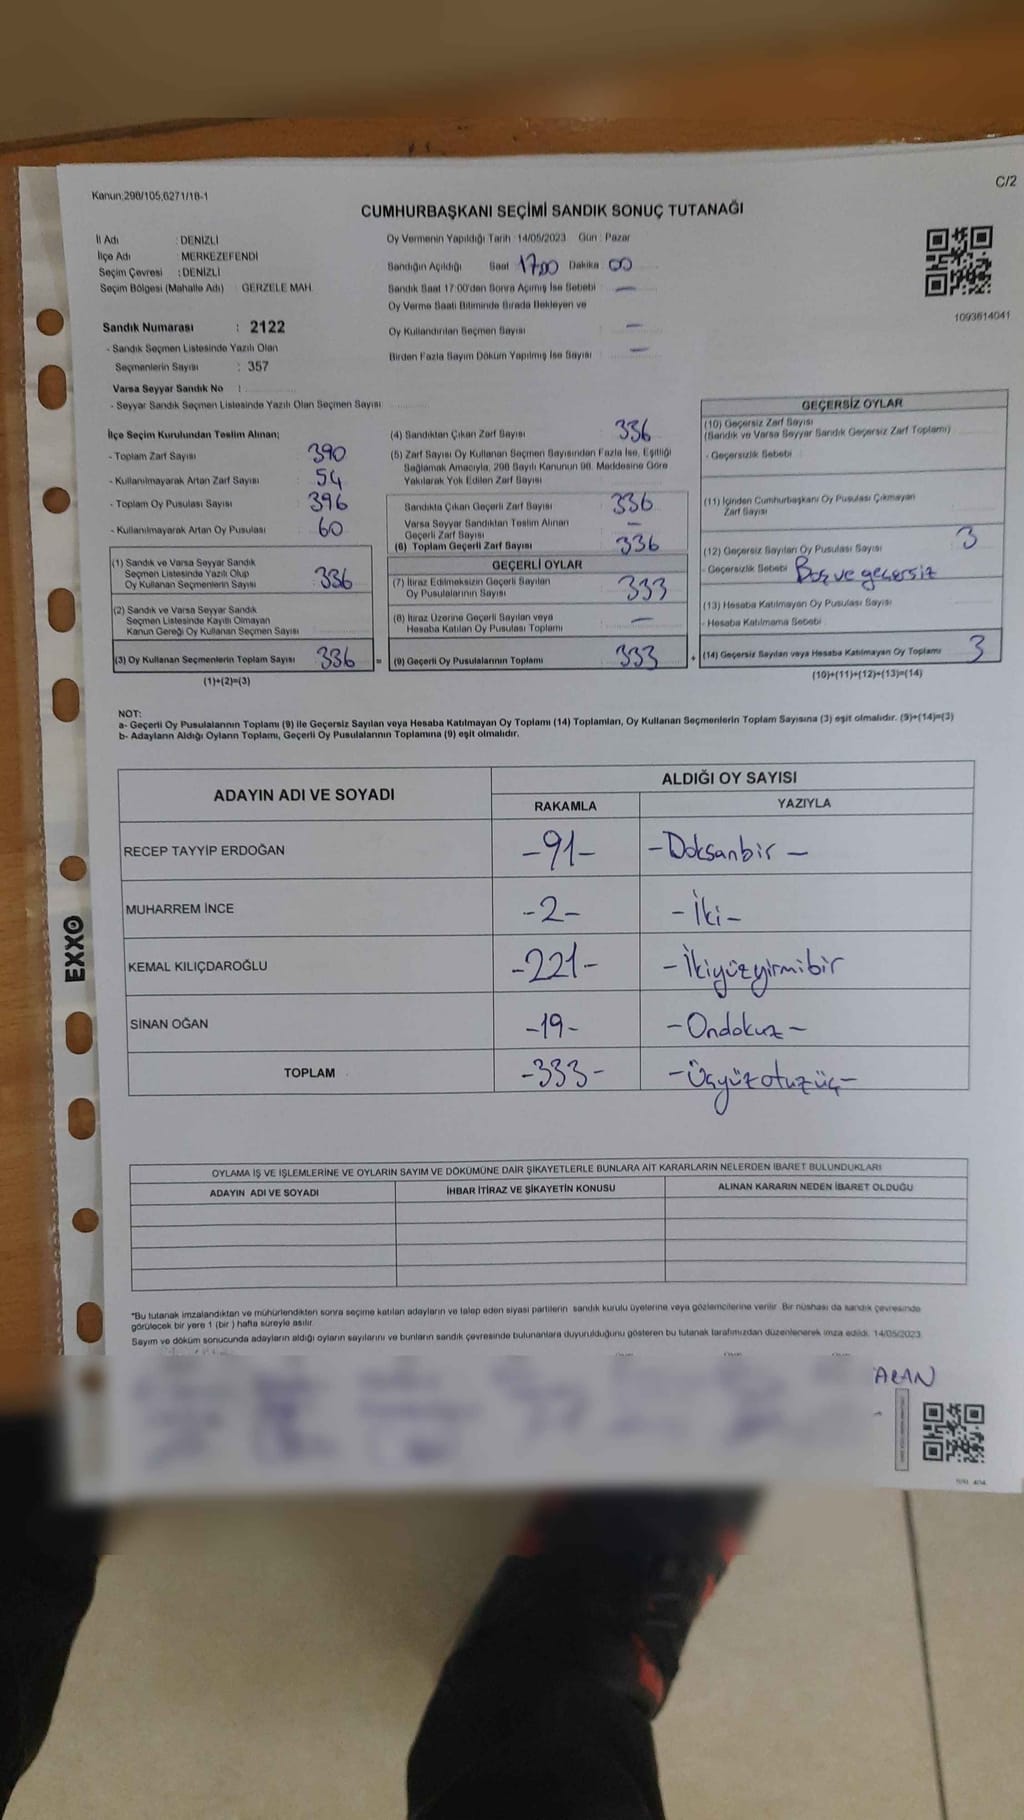 Kanun;298/105;6271/18-1
C/2
CUMHURBAŞKANI SEÇİMİ SANDIK SONUÇ TUTANAĞI
İl Adı : DENİZLİ
İlçe Adı : MERKEZEFENDİ
Seçim Çevresi : DENİZLİ
Seçim Bölgesi (Mahalle Adı) GERZELE MAH.
Sandık Numarası : 2122
- Sandık Seçmen Listesinde Yazılı Olan
Seçmenlerin Sayısı : 357
Varsa Seyyar Sandık No :
- Seyyar Sandık Seçmen Listesinde Yazılı Olan Seçmen Sayısı
Oy Vermenin Yapıldığı Tarih : 14/05/2023 Gün : Pazar
Sandığın Açıldığı Saat 17:00 Dakika 00
Sandık Saat 17:00'den Sonra Açımış İse Sebebi —
Oy Verme Saati Bitiminde Sırada Bekleyen ve
Oy Kullandırılan Seçmen Sayısı —
Birden Fazla Sayım Döküm Yapılmış İse Sayısı —
1093614041
İlçe Seçim Kurulundan Teslim Alınan;
- Toplam Zarf Sayısı 390
- Kullanılmayarak Artan Zarf Sayısı 54
- Toplam Oy Pusulası Sayısı 396
- Kullanılmayarak Artan Oy Pusulası 60
(1) Sandık ve Varsa Seyyar Sandık
Seçmen Listesinde Yazılı Olup
Oy Kullanan Seçmenlerin Sayısı 336
(2) Sandık ve Varsa Seyyar Sandık
Seçmen Listesinde Kayıtlı Olmayan
Kanun Gereği Oy Kullanan Seçmen Sayısı
(3) Oy Kullanan Seçmenlerin Toplam Sayısı 336 =
(1)+(2)=(3)
(4) Sandıktan Çıkan Zarf Sayısı 336
(5) Zarf Sayısı Oy Kullanan Seçmen Sayısından Fazla İse, Eşitliği
Sağlamak Amacıyla, 298 Sayılı Kanunun 98. Maddesine Göre
Yakılarak Yok Edilen Zarf Sayısı
Sandıkta Çıkan Geçerli Zarf Sayısı 336
Varsa Seyyar Sandıktan Teslim Alınan
Geçerli Zarf Sayısı —
(6) Toplam Geçerli Zarf Sayısı 336
GEÇERLİ OYLAR
(7) İtiraz Edilmeksizin Geçerli Sayılan
Oy Pusulalarının Sayısı 333
(8) İtiraz Üzerine Geçerli Sayılan veya
Hesaba Katılan Oy Pusulası Toplamı —
(9) Geçerli Oy Pusulalarının Toplamı 333 +
GEÇERSİZ OYLAR
(10) Geçersiz Zarf Sayısı
(Sandık ve Varsa Seyyar Sandık Geçersiz Zarf Toplamı)
- Geçersizlik Sebebi
(11) İçinden Cumhurbaşkanı Oy Pusulası Çıkmayan
Zarf Sayısı
(12) Geçersiz Sayılan Oy Pusulası Sayısı 3
- Geçersizlik Sebebi Boş ve geçersiz
(13) Hesaba Katılmayan Oy Pusulası Sayısı
- Hesaba Katılmama Sebebi
(14) Geçersiz Sayılan veya Hesaba Katılmayan Oy Toplamı 3
(10)+(11)+(12)+(13)=(14)
NOT:
a- Geçerli Oy Pusulalarının Toplamı (9) ile Geçersiz Sayılan veya Hesaba Katılmayan Oy Toplamı (14) Toplamları, Oy Kullanan Seçmenlerin Toplam Sayısına (3) eşit olmalıdır. (9)+(14)=(3)
b- Adayların Aldığı Oyların Toplamı, Geçerli Oy Pusulalarının Toplamına (9) eşit olmalıdır.
ADAYIN ADI VE SOYADI ALDIĞI OY SAYISI
RAKAMLA YAZIYLA
RECEP TAYYİP ERDOĞAN -91- -Doksanbir -
MUHARREM İNCE -2- -İki-
KEMAL KILIÇDAROĞLU -221- -İkiyüzyirmibir
SİNAN OĞAN -19- -Ondokuz-
TOPLAM -333- -Üçyüzotuzüç-
EXXO
OYLAMA İŞ VE İŞLEMLERİNE VE OYLARIN SAYIM VE DÖKÜMÜNE DAİR ŞİKAYETLERLE BUNLARA AİT KARARLARIN NELERDEN İBARET BULUNDUKLARI
ADAYIN ADI VE SOYADI İHBAR İTİRAZ VE ŞİKAYETİN KONUSU ALINAN KARARIN NEDEN İBARET OLDUĞU
"Bu tutanak imzalandıktan ve mühürlendikten sonra seçime katılan adayların ve talep eden siyasi partilerin sandık kurulu üyelerine veya gözlemcilerine verilir. Bir nüshası da sandık çevresinde
görülecek bir yere 1 (bir ) hafta süreyle asılır.
Sayım ve döküm sonucunda adayların aldığı oyların sayılarını ve bunların sandık çevresinde bulunanlara duyurulduğunu gösteren bu tutanak tarafımızdan düzenlenerek imza edildi. 14/05/2023